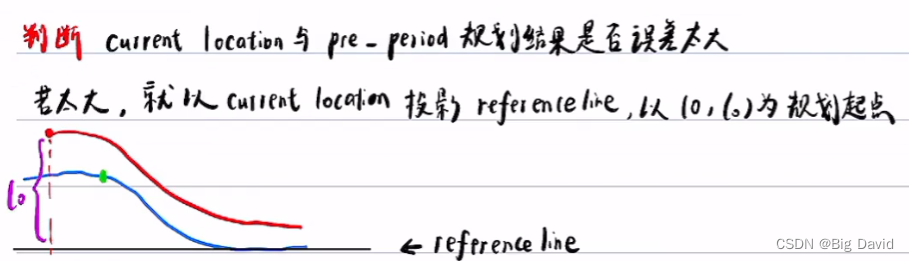 判断 current location 与 pre-period 规划结果是否误差太大
若太大,就以 current location 投影 reference line,以 (0, l₀) 为规划起点
l₀
← reference line
CSDN @Big David